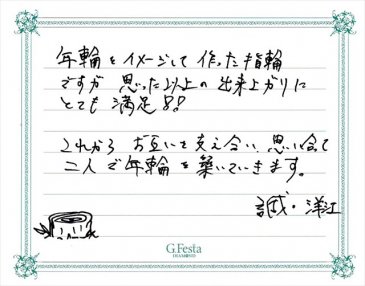 年輪をイメージして作った指輪
ですが思った以上の出来上がりに
とても満足!!
これからお互いを支え合い、思い合って
二人で年輪を築いていきます。
誠・洋江
G.Festa
DIAMOND